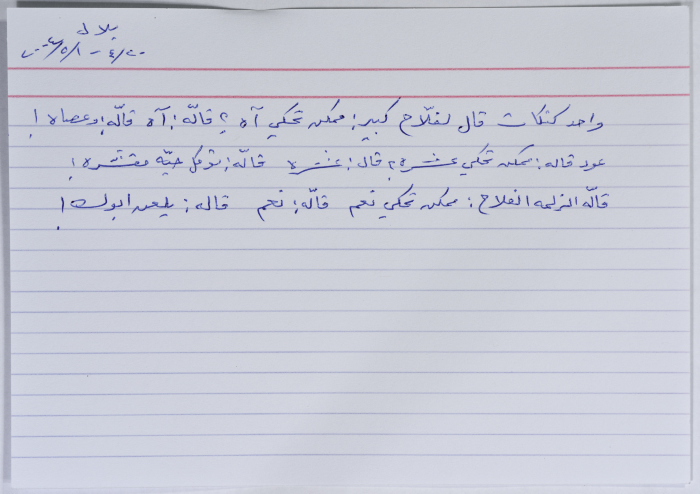 بلال
٢٠٠٤/٥/١ - ٤/٣٠
واحد كتكات قال لفلّاح كبير: ممكن تحكي آه ؟ قالّه: آه قالّه: وعصاه !
عود قاله: ممكن تحكي عشره ؟ قال: عشره قالّه: توكل حيّه مقشره !
قالّه الزلمه الفلاح: ممكن تحكي نعم قالّه: نعم قاله: يلعن ابوك !